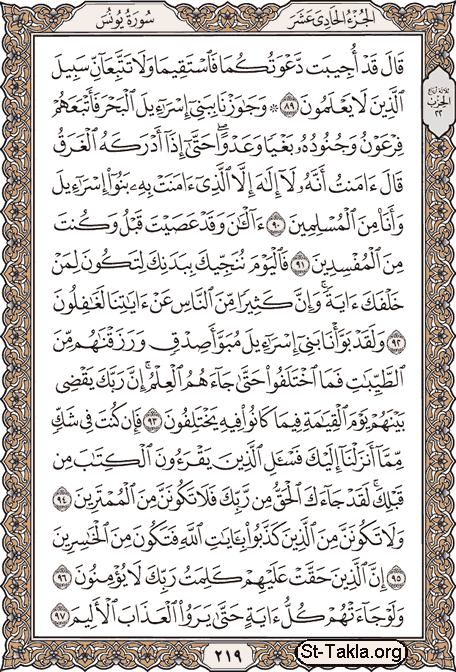 الجزء الحادي عشر
سورة يونس
قَالَ قَدْ أُجِيبَت دَّعْوَتُكُمَا فَاسْتَقِيمَا وَلَا تَتَّبِعَآنِّ سَبِيلَ
ثلاثة أرباع
الحزب
٢٢
الَّذِينَ لَا يَعْلَمُونَ ٨٩ ۞ وَجَٰوَزْنَا بِبَنِي إِسْرَٰٓءِيلَ الْبَحْرَ فَأَتْبَعَهُمْ
فِرْعَوْنُ وَجُنُودُهُ بَغْيًا وَعَدْوًا ۖ حَتَّىٰٓ إِذَآ أَدْرَكَهُ الْغَرَقُ
قَالَ ءَامَنتُ أَنَّهُ لَآ إِلَٰهَ إِلَّا الَّذِيٓ ءَامَنَتْ بِهِۦ بَنُوٓا۟ إِسْرَٰٓءِيلَ
وَأَنَا۠ مِنَ الْمُسْلِمِينَ ٩٠ ءَآلْـَٰٔنَ وَقَدْ عَصَيْتَ قَبْلُ وَكُنتَ
مِنَ الْمُفْسِدِينَ ٩١ فَالْيَوْمَ نُنَجِّيكَ بِبَدَنِكَ لِتَكُونَ لِمَنْ
خَلْفَكَ ءَايَةً ۚ وَإِنَّ كَثِيرًا مِّنَ النَّاسِ عَنْ ءَايَٰتِنَا لَغَٰفِلُونَ
٩٢ وَلَقَدْ بَوَّأْنَا بَنِيٓ إِسْرَٰٓءِيلَ مُبَوَّأَ صِدْقٍ وَرَزَقْنَٰهُم مِّنَ
الطَّيِّبَٰتِ فَمَا اخْتَلَفُوا۟ حَتَّىٰ جَآءَهُمُ الْعِلْمُ ۚ إِنَّ رَبَّكَ يَقْضِي
بَيْنَهُمْ يَوْمَ الْقِيَٰمَةِ فِيمَا كَانُوا۟ فِيهِ يَخْتَلِفُونَ ٩٣ فَإِن كُنتَ فِي شَكٍّ
مِّمَّآ أَنزَلْنَآ إِلَيْكَ فَسْـَٔلِ الَّذِينَ يَقْرَءُونَ الْكِتَٰبَ مِن
قَبْلِكَ ۚ لَقَدْ جَآءَكَ الْحَقُّ مِن رَّبِّكَ فَلَا تَكُونَنَّ مِنَ الْمُمْتَرِينَ ٩٤
وَلَا تَكُونَنَّ مِنَ الَّذِينَ كَذَّبُوا۟ بِـَٔايَٰتِ اللَّهِ فَتَكُونَ مِنَ الْخَٰسِرِينَ
٩٥ إِنَّ الَّذِينَ حَقَّتْ عَلَيْهِمْ كَلِمَتُ رَبِّكَ لَا يُؤْمِنُونَ ٩٦
وَلَوْ جَآءَتْهُمْ كُلُّ ءَايَةٍ حَتَّىٰ يَرَوُا۟ الْعَذَابَ الْأَلِيمَ ٩٧
٢١٩
St-Takla.org